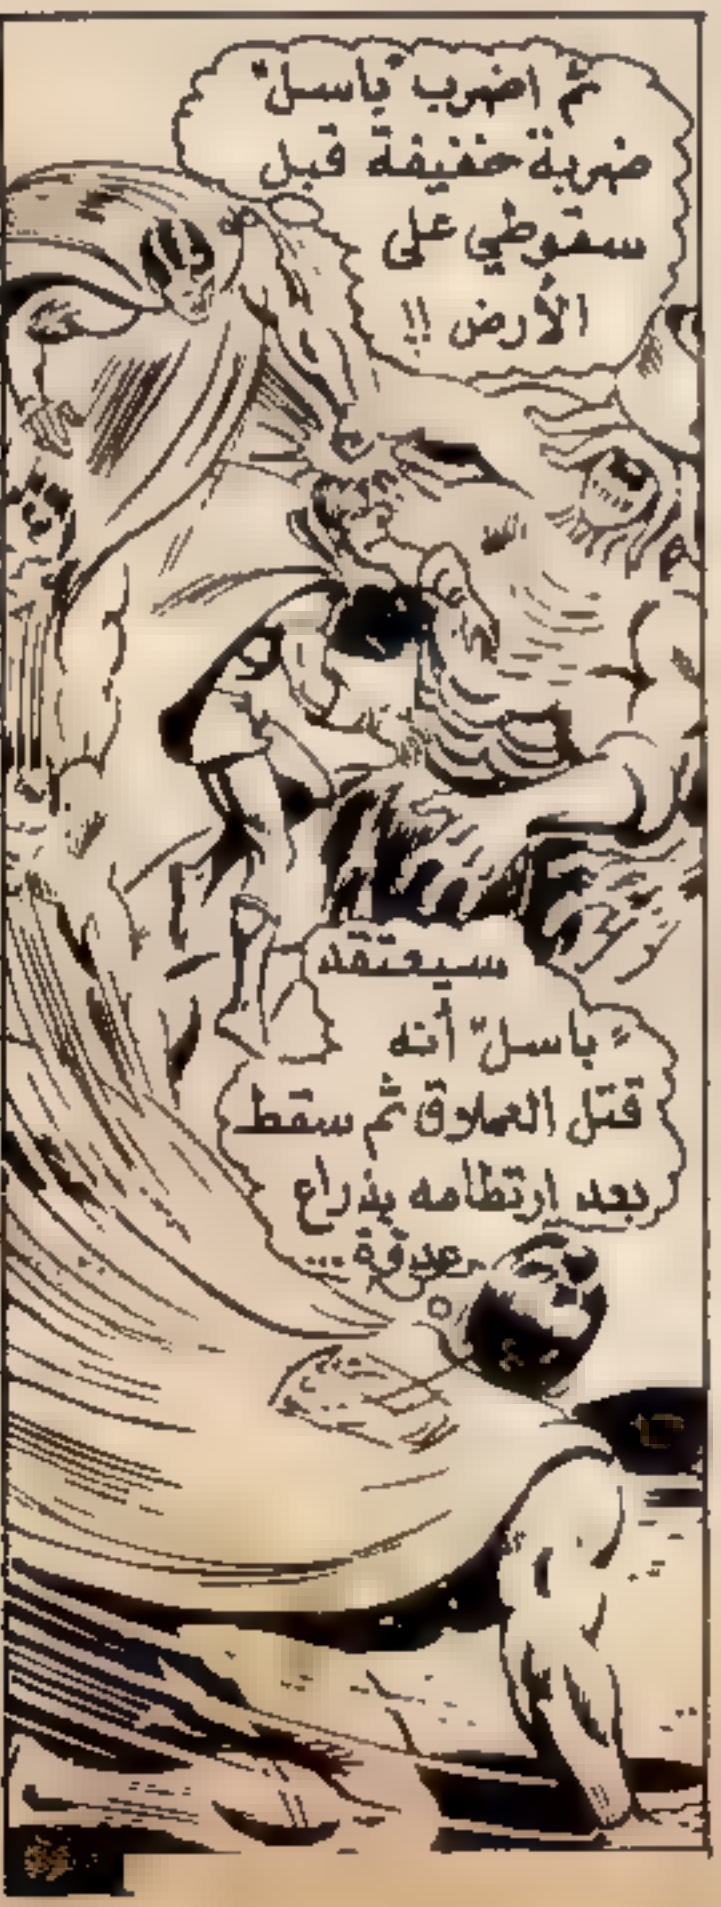 ثم اضرب "باسل"
ضربة خفيفة قبل
سقوطي على
الأرض !!
سيعتقد
"باسل" أنه
قتل العملاق ثم سقط
بعد ارتطامه بذراع
عدوّة...